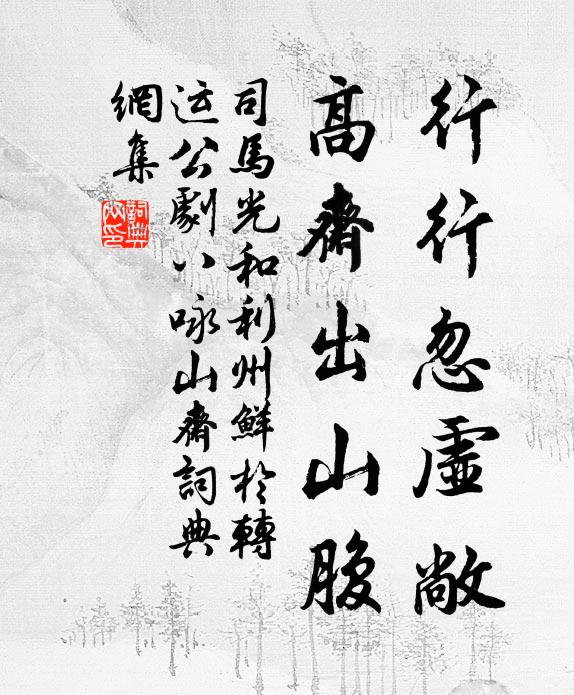 行行忽虛敞
高齋出山腹
司馬光和利州鮮於轉
运公劇八咏山齋詞典
網集
詞典网印